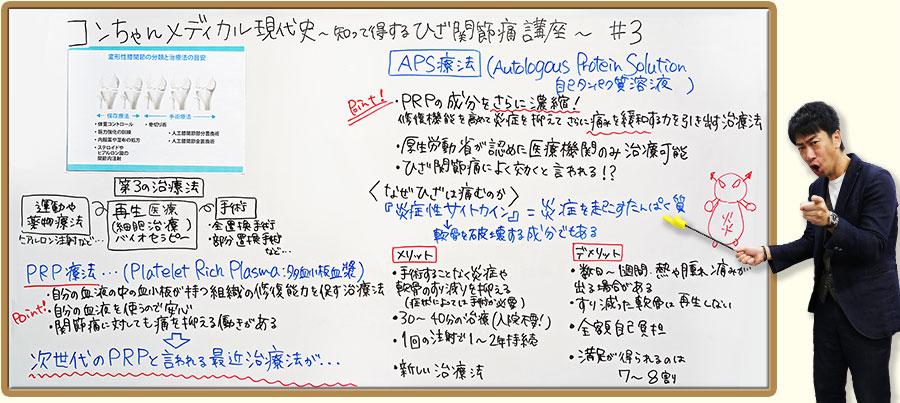 コンちゃんメディカル現代史～知って得するひざ関節痛講座～ #3
変形性膝関節の分類と治療法の目安
保存療法
手術療法
・体重コントロール
・筋力強化の訓練
・内服薬や湿布の処方
・ステロイドや
ヒアルロン酸の
関節内注射
・骨切り術
・人工膝関節部分置換術
・人工膝関節全置換術
第3の治療法
運動や
薬物療法
ヒアルロン注射など…
再生医療
(細胞治療)
バイオセラピー
手術
・全置換手術
・部分置換手術
など…
PRP療法…(Platelet Rich Plasma:多血小板血漿)
・自分の血液の中の血小板が持つ組織の修復能力を促す治療法
Point!
・自分の血液を使うので安心
・関節痛に対しても痛を抑える働きがある
次世代のPRPと言われる最近治療法が…
APS療法 (Autologous Protein Solution
自己タンパク質溶液 )
Point!
・PRPの成分をさらに濃縮!
修復機能を高めて炎症を抑えてさらに痛みを緩和する力を引き出す治療法
・厚生労働省が認めた医療機関のみ治療可能
・ひざ関節痛によく効くと言われる!?
〈なぜひざは痛むのか〉
『炎症性サイトカイン』=炎症を起こすたんぱく質
軟骨を破壊する成分でもある
炎
メリット
・手術することなく炎症や
軟骨のすり減りを抑える
(症状によっては手術が必要)
・30～40分の治療(入院不要!)
・1回の注射で1～2年持続
・新しい治療法
デメリット
・数日～1週間、熱や腫れ、痛みが
出る場合がある
・すり減った軟骨は再生しない
・全額自己負担
・満足が得られるのは
7～8割